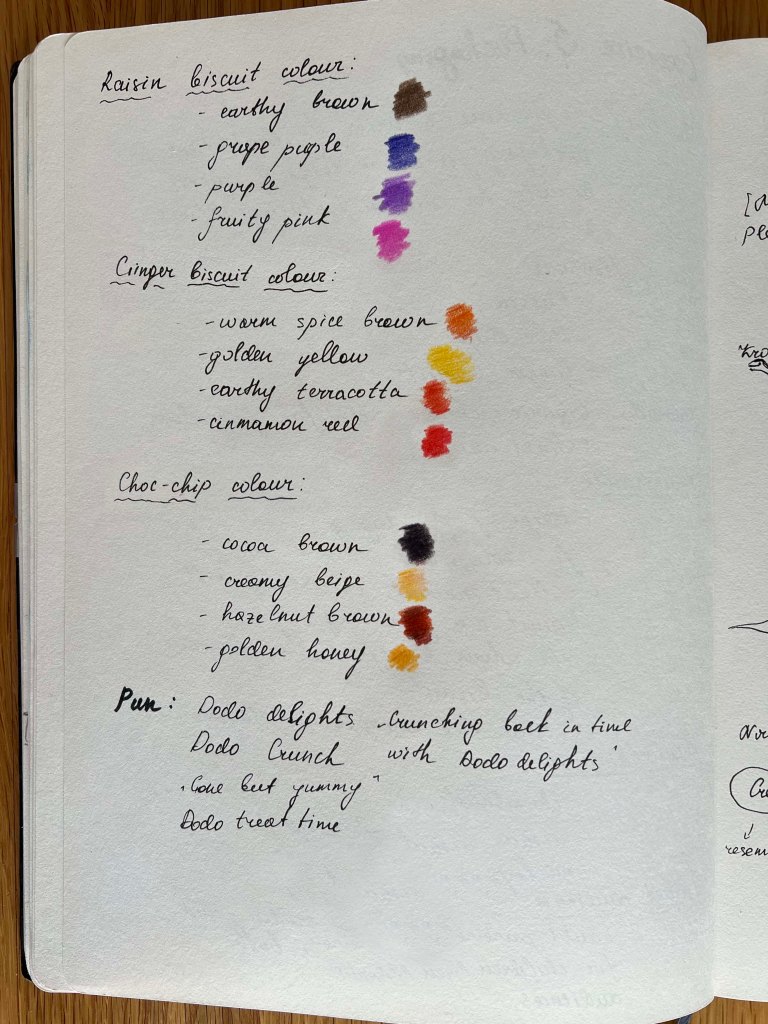 Raisin biscuit colour:
- earthy brown
- grape puple
- purple
- fruity pink
Ginger biscuit colour:
- warm spice brown
- golden yellow
- earthy terracotta
- cinnamon red
Choc-chip colour:
- cocoa brown
- creamy beige
- hazelnut brown
- golden honey
Pun: Dodo delights „Crunching back in time
Dodo Crunch with Dodo delights"
„Gone but yummy"
Dodo treat time
resem